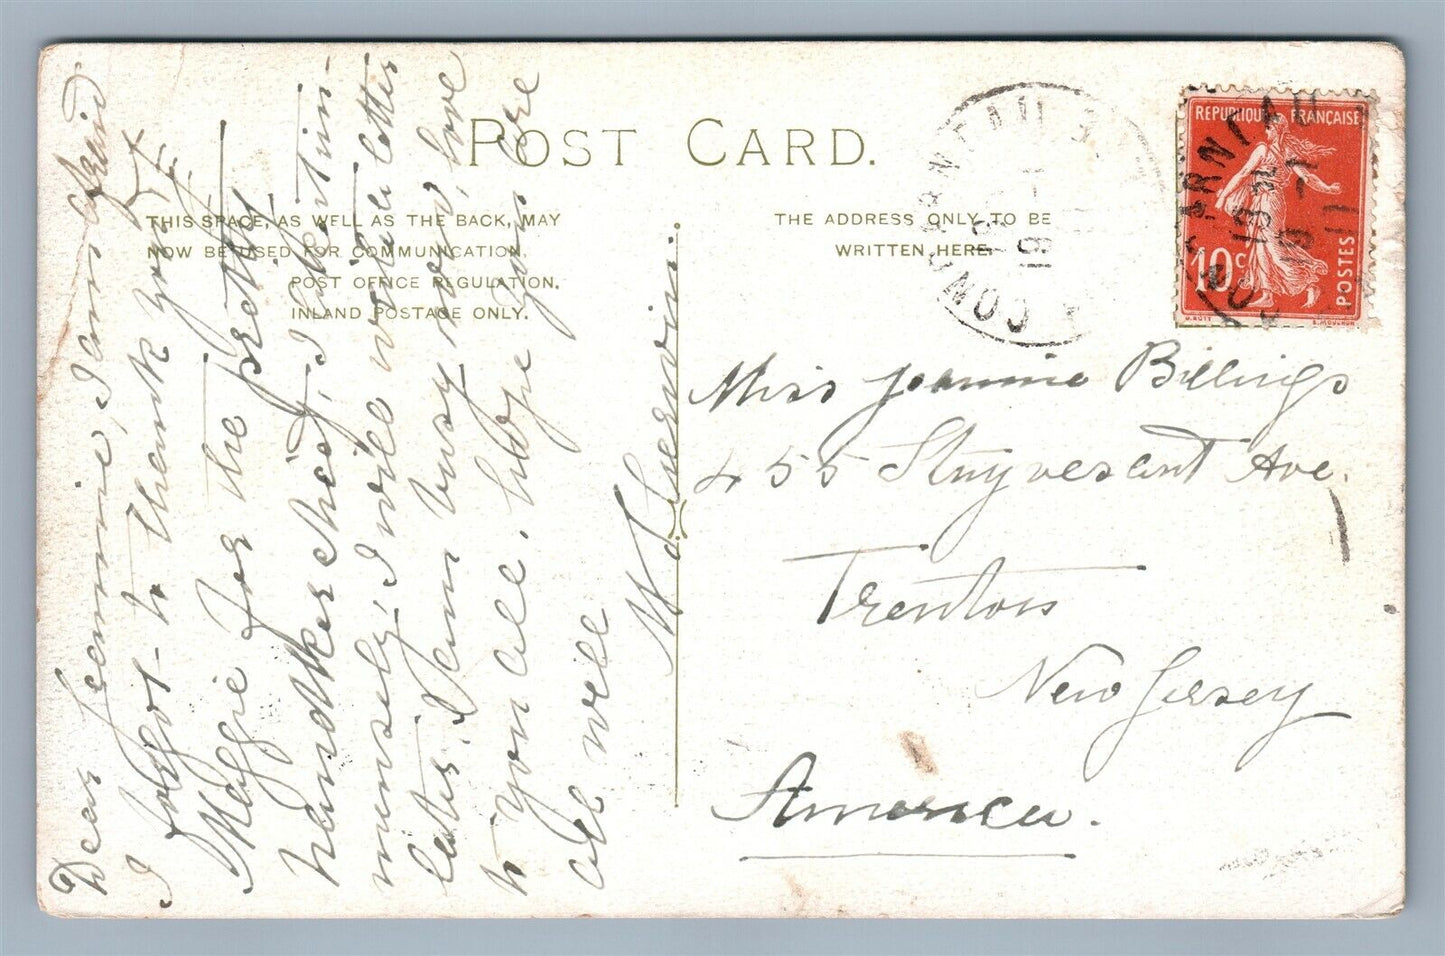 POST CARD.
THIS SPACE, AS WELL AS THE BACK, MAY
NOW BE USED FOR COMMUNICATION.
POST OFFICE REGULATION.
INLAND POSTAGE ONLY.
THE ADDRESS ONLY TO BE
WRITTEN HERE.
CONCARNEAU
19
REPUBLIQUE FRANÇAISE
10c
POSTES
CONCARNEAU
Dear Jeannie, I am afraid
I forgot to thank you &
Maggie for the pretty
handkerchief, I do
immensely, I will write letter
later. I am busy now, love
to you all. hope you are
all well
Miss Jeannie Billings
455 Stuyvesant Ave.
Trenton
New Jersey
America.